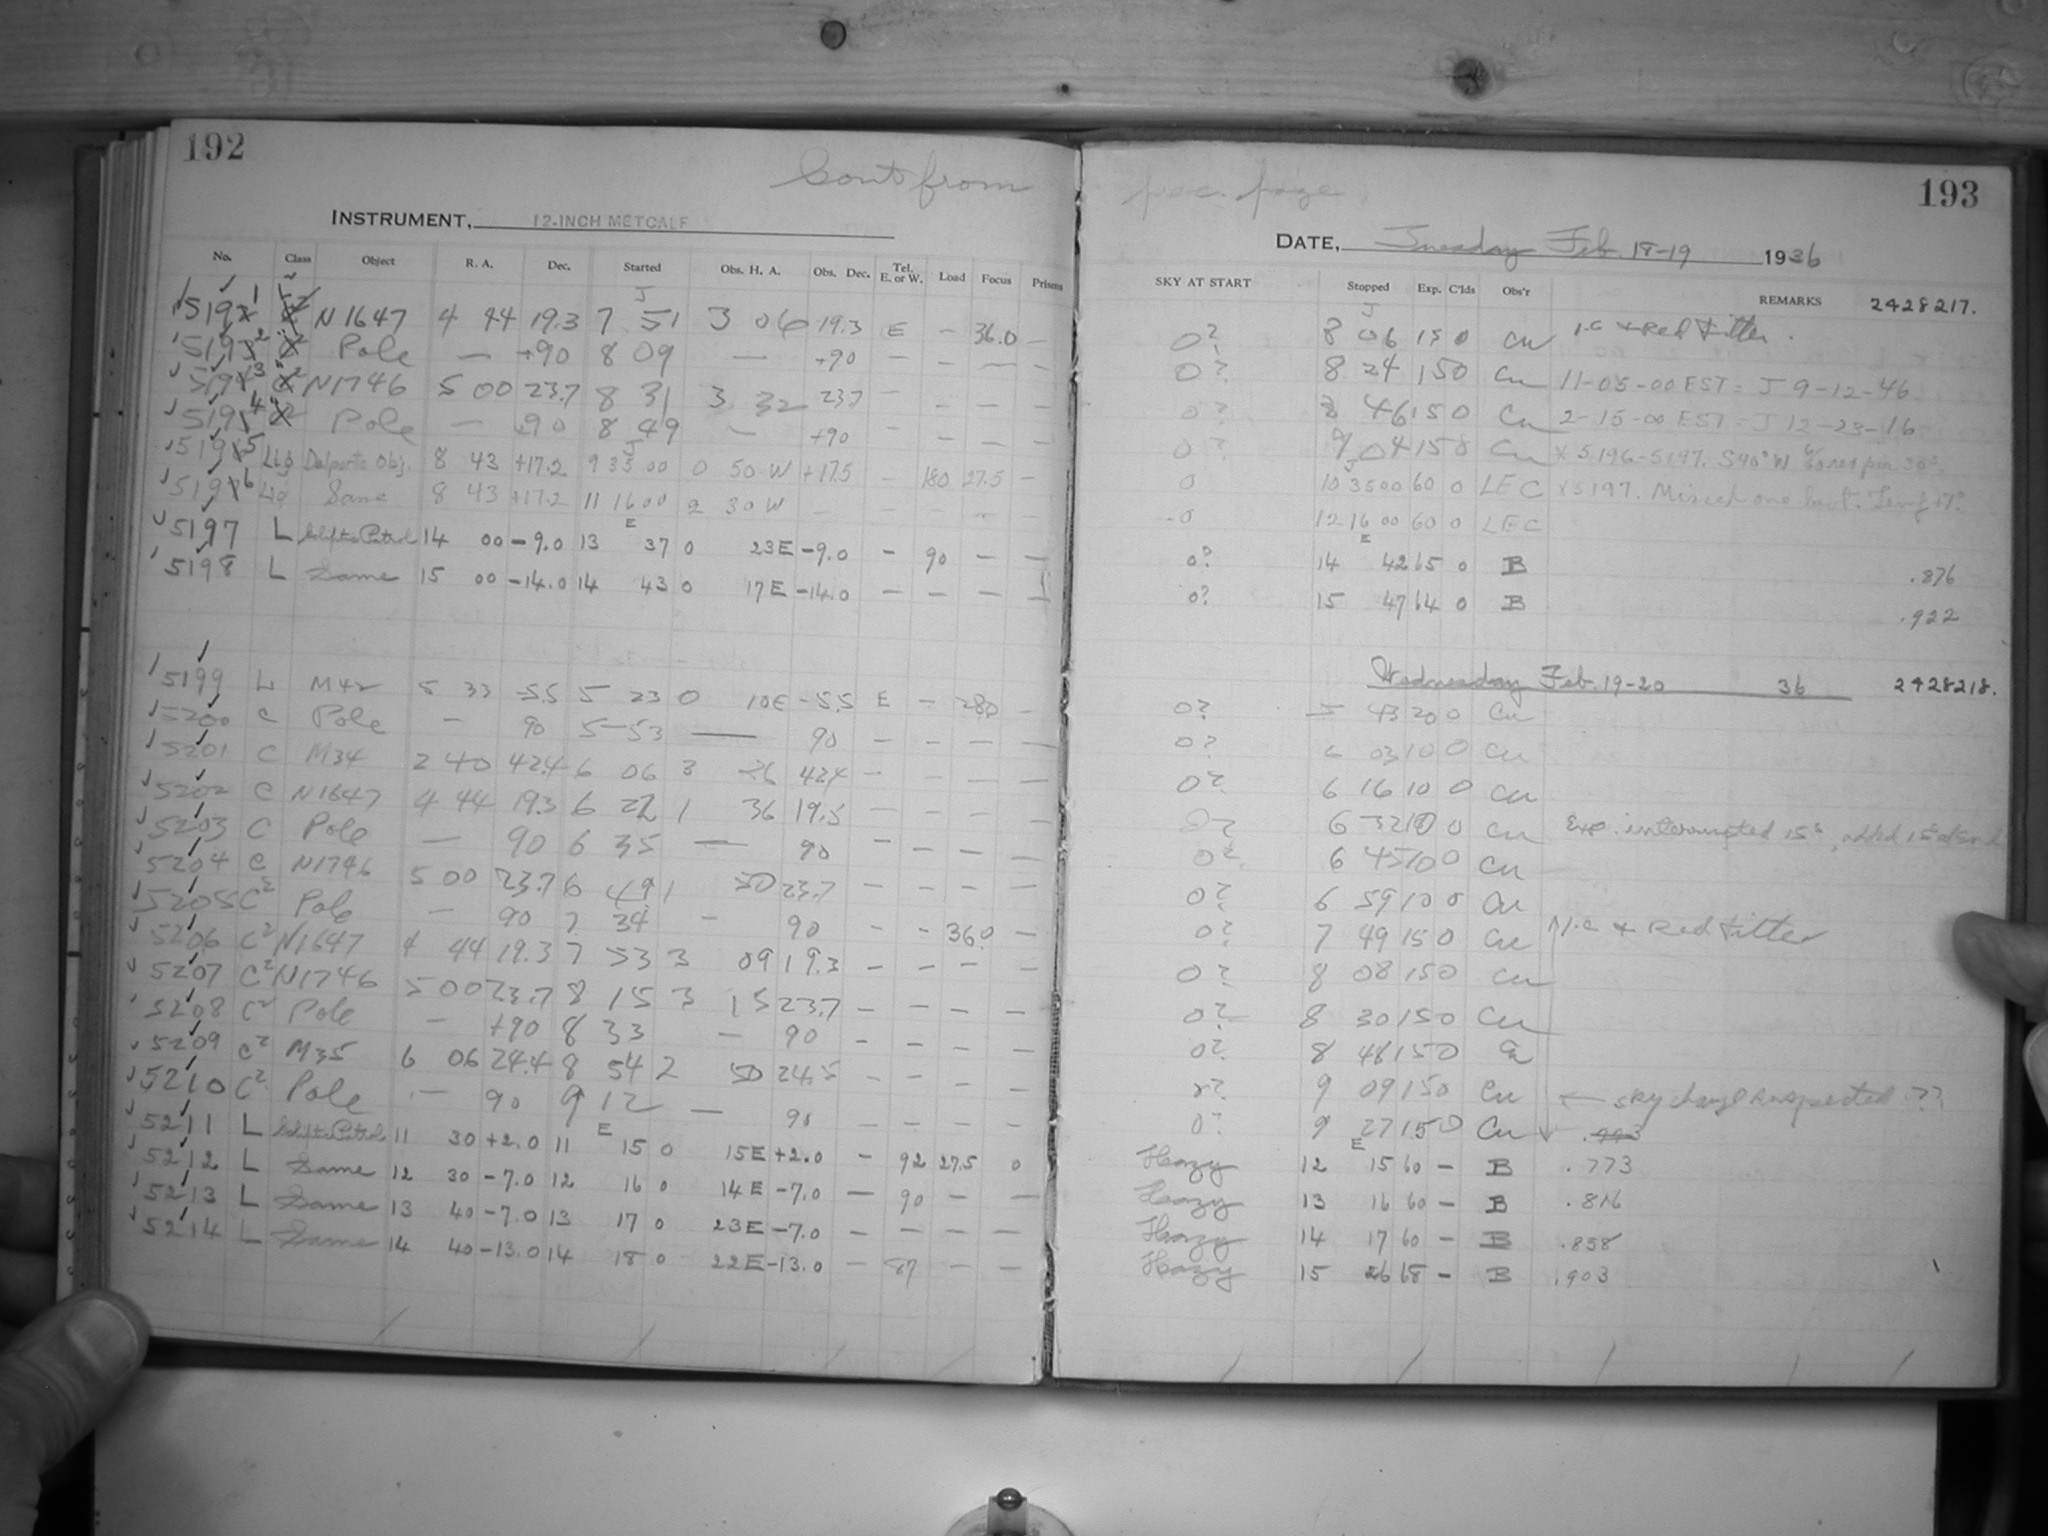 192
Cont from
INSTRUMENT, 12-INCH METCALF
No. Class Object R. A. Dec. Started Obs. H. A. Obs. Dec. Tel. E. or W. Load Focus Prisms
5191 N1647 4 44 19.3 7 51 3 06 19.3 E - 36.0 -
5192 Pole - +90 8 09 - +90 - - - -
5193 N1746 5 00 23.7 8 31 3 32 23.7 - - - -
5194 Pole - 90 8 49 - +90 - - -
5195 Delporte Obj. 8 43 +17.2 9 35 00 0 50 W +17.5 - 180 27.5 -
5196 Same 8 43 +17.2 11 16 00 2 30 W - - - - -
5197 L Patrol 14 00 -9.0 13 37 0 23E -9.0 - 90 - -
5198 L Same 15 00 -14.0 14 43 0 17E -14.0 - - - -
5199 L M42 5 33 -5.5 5 23 0 10E -5.5 E - 280 -
5200 C Pole - 90 5 53 - 90 - - - -
5201 C M34 2 40 42.4 6 06 3 26 42.4 - - - -
5202 C N1647 4 44 19.3 6 22 1 36 19.5 - - - -
5203 C Pole - 90 6 35 - 90 - - - -
5204 C N1746 5 00 23.7 6 49 1 50 23.7 - - - -
5205 C² Pole - 90 7 34 - 90 - - 36.0 -
5206 C² N1647 4 44 19.3 7 53 3 09 19.3 - - - -
5207 C² N1746 5 00 23.7 8 15 3 15 23.7 - - - -
5208 C² Pole - +90 8 33 - 90 - - - -
5209 C² M35 6 06 24.4 8 54 2 50 24.5 - - - -
5210 C² Pole - 90 9 12 - 90 - - - -
5211 L Patrol 11 30 +2.0 11 15 0 15E +2.0 - 92 27.5 0
5212 L Same 12 30 -7.0 12 16 0 14E -7.0 - 90 - -
5213 L Same 13 40 -7.0 13 17 0 23E -7.0 - - - -
5214 L Same 14 40 -13.0 14 18 0 22E -13.0 - 87 - -
193
page
DATE, Tuesday Feb. 18-19 1936
SKY AT START Stopped Exp. C'lds Obs'r REMARKS 2428217.
0? 8 06 15 0 Cu + Red Filter.
0? 8 24 15 0 Cu 11-05-00 EST = J 9-12-46
0? 8 46 15 0 Cu 2-15-00 EST = J 12-23-16
0? 9 04 15 0 Cu x 5196-5197. S40°W per 30s.
0 10 35 00 60 0 LEC x5197. Missed one
0 12 16 00 60 0 LEC
0? 14 42 65 0 B .876
0? 15 47 64 0 B .922
Wednesday Feb. 19-20 36 2428218.
0? 5 43 20 0 Cu
0? 6 03 10 0 Cu
0? 6 16 10 0 Cu
0? 6 32 10 0 Cu Exp. interrupted 15s, added 15s
0? 6 45 10 0 Cu
0? 6 59 10 0 Cu
0? 7 49 15 0 Cu + Red Filter
0? 8 08 15 0 Cu
0? 8 30 15 0 Cu
0? 8 48 15 0 Cu
? 9 09 15 0 Cu ← sky change suspected ??
0? 9 27 15 0 Cu
Hazy 12 15 60 - B .773
Hazy 13 16 60 - B .816
Hazy 14 17 60 - B .858
Hazy 15 26 68 - B .903